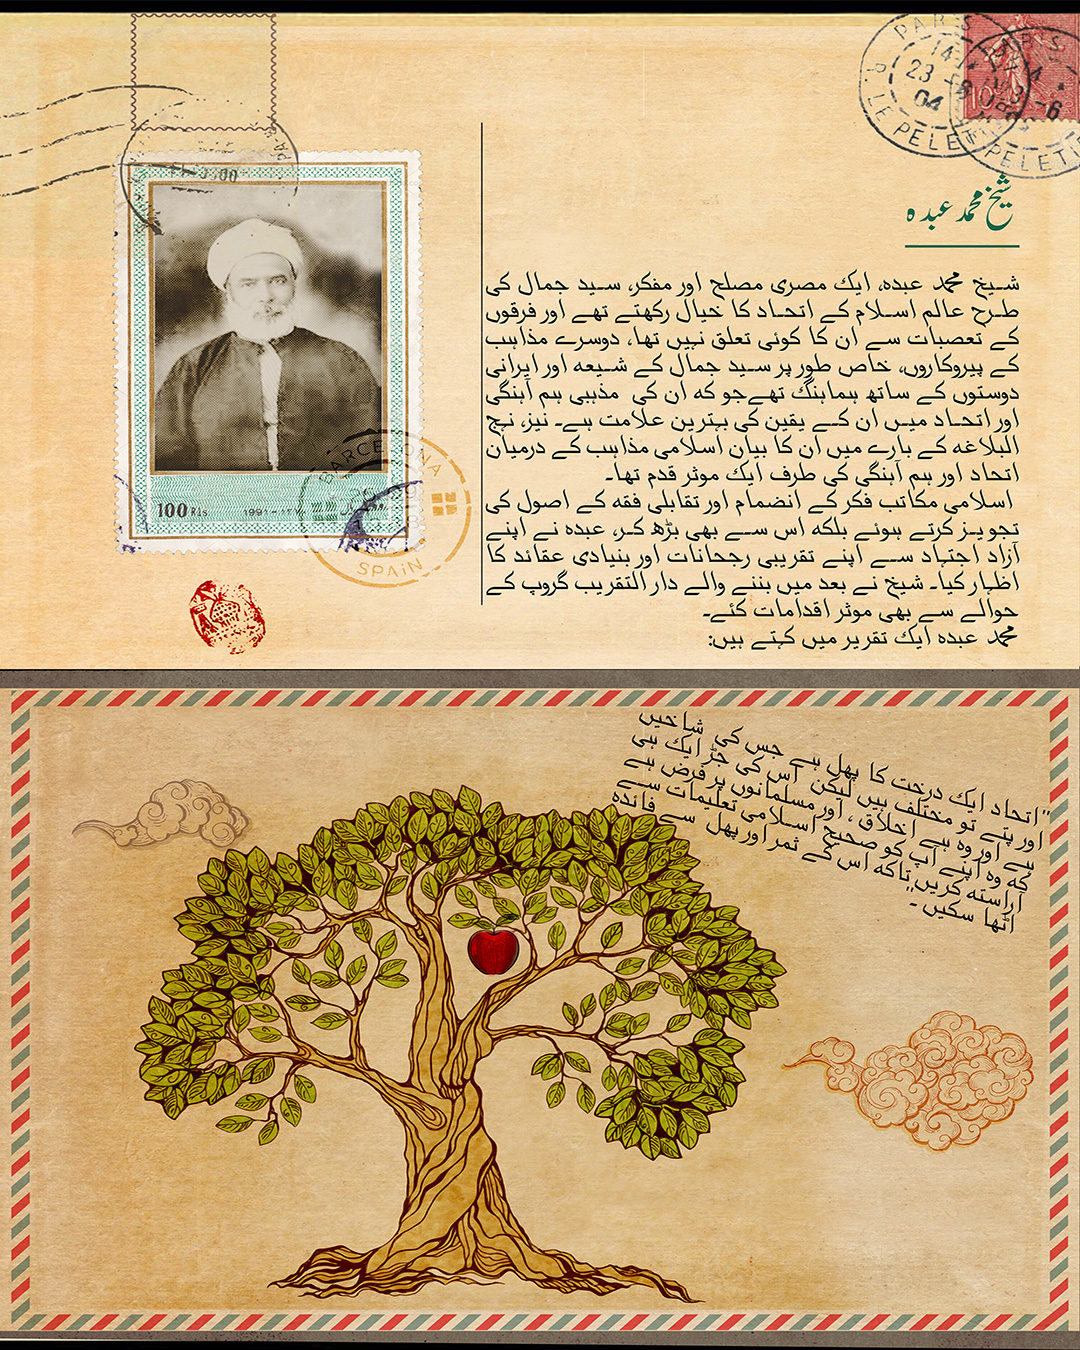 PARIS
14
23
04
R. LE PELETIER
10
شیخ محمد عبدہ
شیخ محمد عبدہ، ایک مصری مصلح اور مفکر، سید جمال کی
طرح عالم اسلام کے اتحاد کا خیال رکھتے تھے اور فرقوں
کے تعصبات سے ان کا کوئی تعلق نہیں تھا، دوسرے مذاہب
کے پیروکاروں، خاص طور پر سید جمال کے شیعہ اور ایرانی
دوستوں کے ساتھ ہماہنگ تھےجو کہ ان کی مذہبی ہم آہنگی
اور اتحاد میں ان کے یقین کی بہترین علامت ہے۔ نیز، نہج
البلاغہ کے بارے میں ان کا بیان اسلامی مذاہب کے درمیان
اتحاد اور ہم آہنگی کی طرف ایک موثر قدم تھا۔
اسلامی مکاتب فکر کے انضمام اور تقابلی فقہ کے اصول کی
تجویز کرتے ہوئے بلکہ اس سے بھی بڑھ کر، عبدہ نے اپنے
آزاد اجتہاد سے اپنے تقریبی رجحانات اور بنیادی عقائد کا
اظہار کیا۔ شیخ نے بعد میں بننے والے دار التقریب گروپ کے
حوالے سے بھی موثر اقدامات کئے۔
محمد عبدہ ایک تقریر میں کہتے ہیں:
100 Rls.
BARCELONA
SPAIN
"اتحاد ایک درخت کا پھل ہے جس کی شاخیں
اور پتے تو مختلف ہیں لیکن اس کی جڑ ایک ہی
ہے اور وہ ہے اخلاق، اور مسلمانوں پر فرض ہے
کہ وہ اپنے آپ کو صحیح اسلامی تعلیمات سے
آراستہ کریں تاکہ اس کے ثمر اور پھل سے فائدہ
اٹھا سکیں۔"